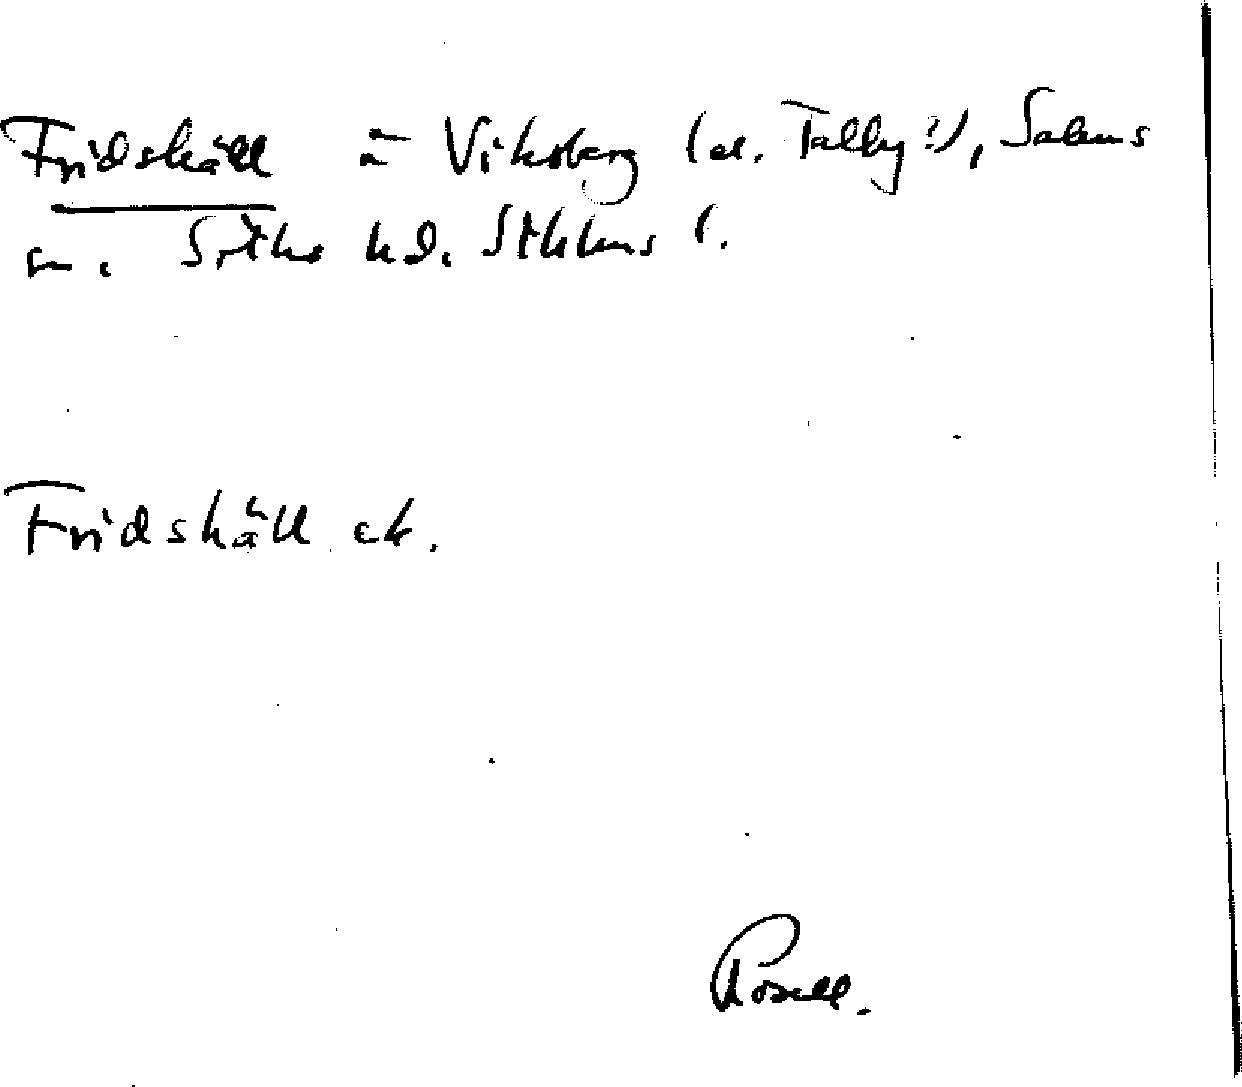 Fridskäll = Viksberg (el. Tallby?), Salems
sn. Svartlösa hd. Sthlms l.
Fridskäll ek.
Rosell.